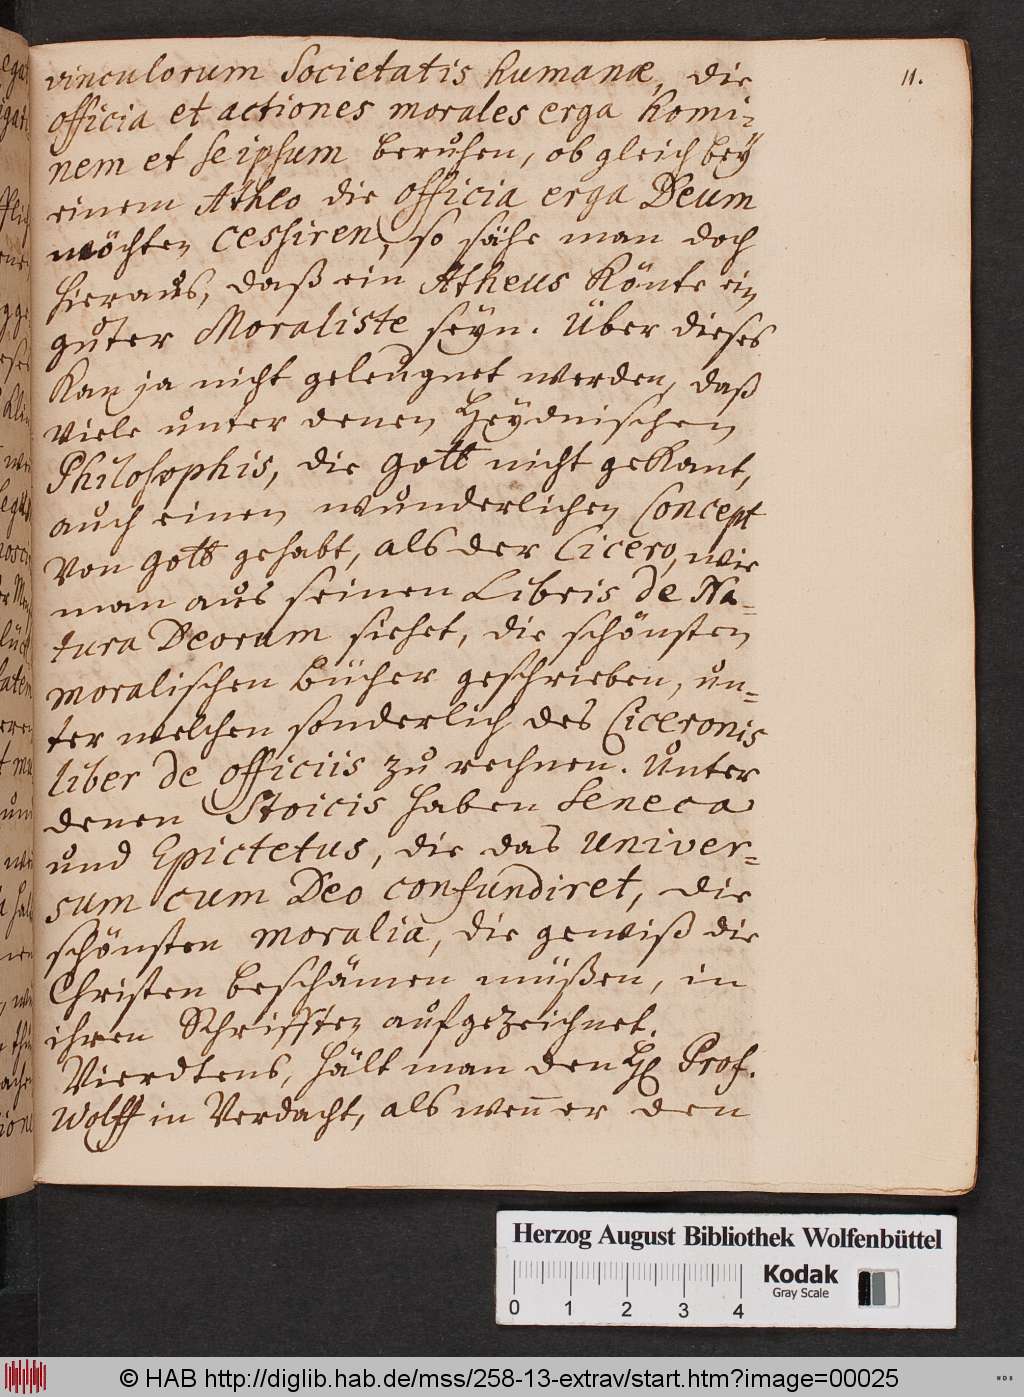 11.
vinculorum Societatis humanæ, die
officia et actiones morales erga homi-
nem et seipsum beruhen, ob gleich bey
einem Atheo die officia erga Deum
möchten cessiren, so sähe man doch
hieraus, daß ein Atheus könte ein
guter Moraliste seyn. Über dieses
kan ja nicht geleugnet werden, daß
viele unter denen Heydnischen
Philosophis, die Gott nicht gekant,
auch einen wunderlichen Concept
von Gott gehabt, als der Cicero, wie
man aus seinen Libris de Na-
tura Deorum siehet, die schönsten
moralischen Bücher geschrieben, un-
ter welchen sonderlich des Ciceronis
liber de officiis zu rechnen. Unter
denen Stoicis haben Seneca
und Epictetus, die das Univer-
sum cum Deo confundiret, die
schönsten moralia, die gewiß die
Christen beschämen müßen, in
ihren Schrifften aufgezeichnet.
Vierdtens, hält man den H. Prof.
Wolff in Verdacht, als wenn er den
Herzog August Bibliothek Wolfenbüttel
0 1 2 3 4
Kodak
Gray Scale
© HAB http://diglib.hab.de/mss/258-13-extrav/start.htm?image=00025